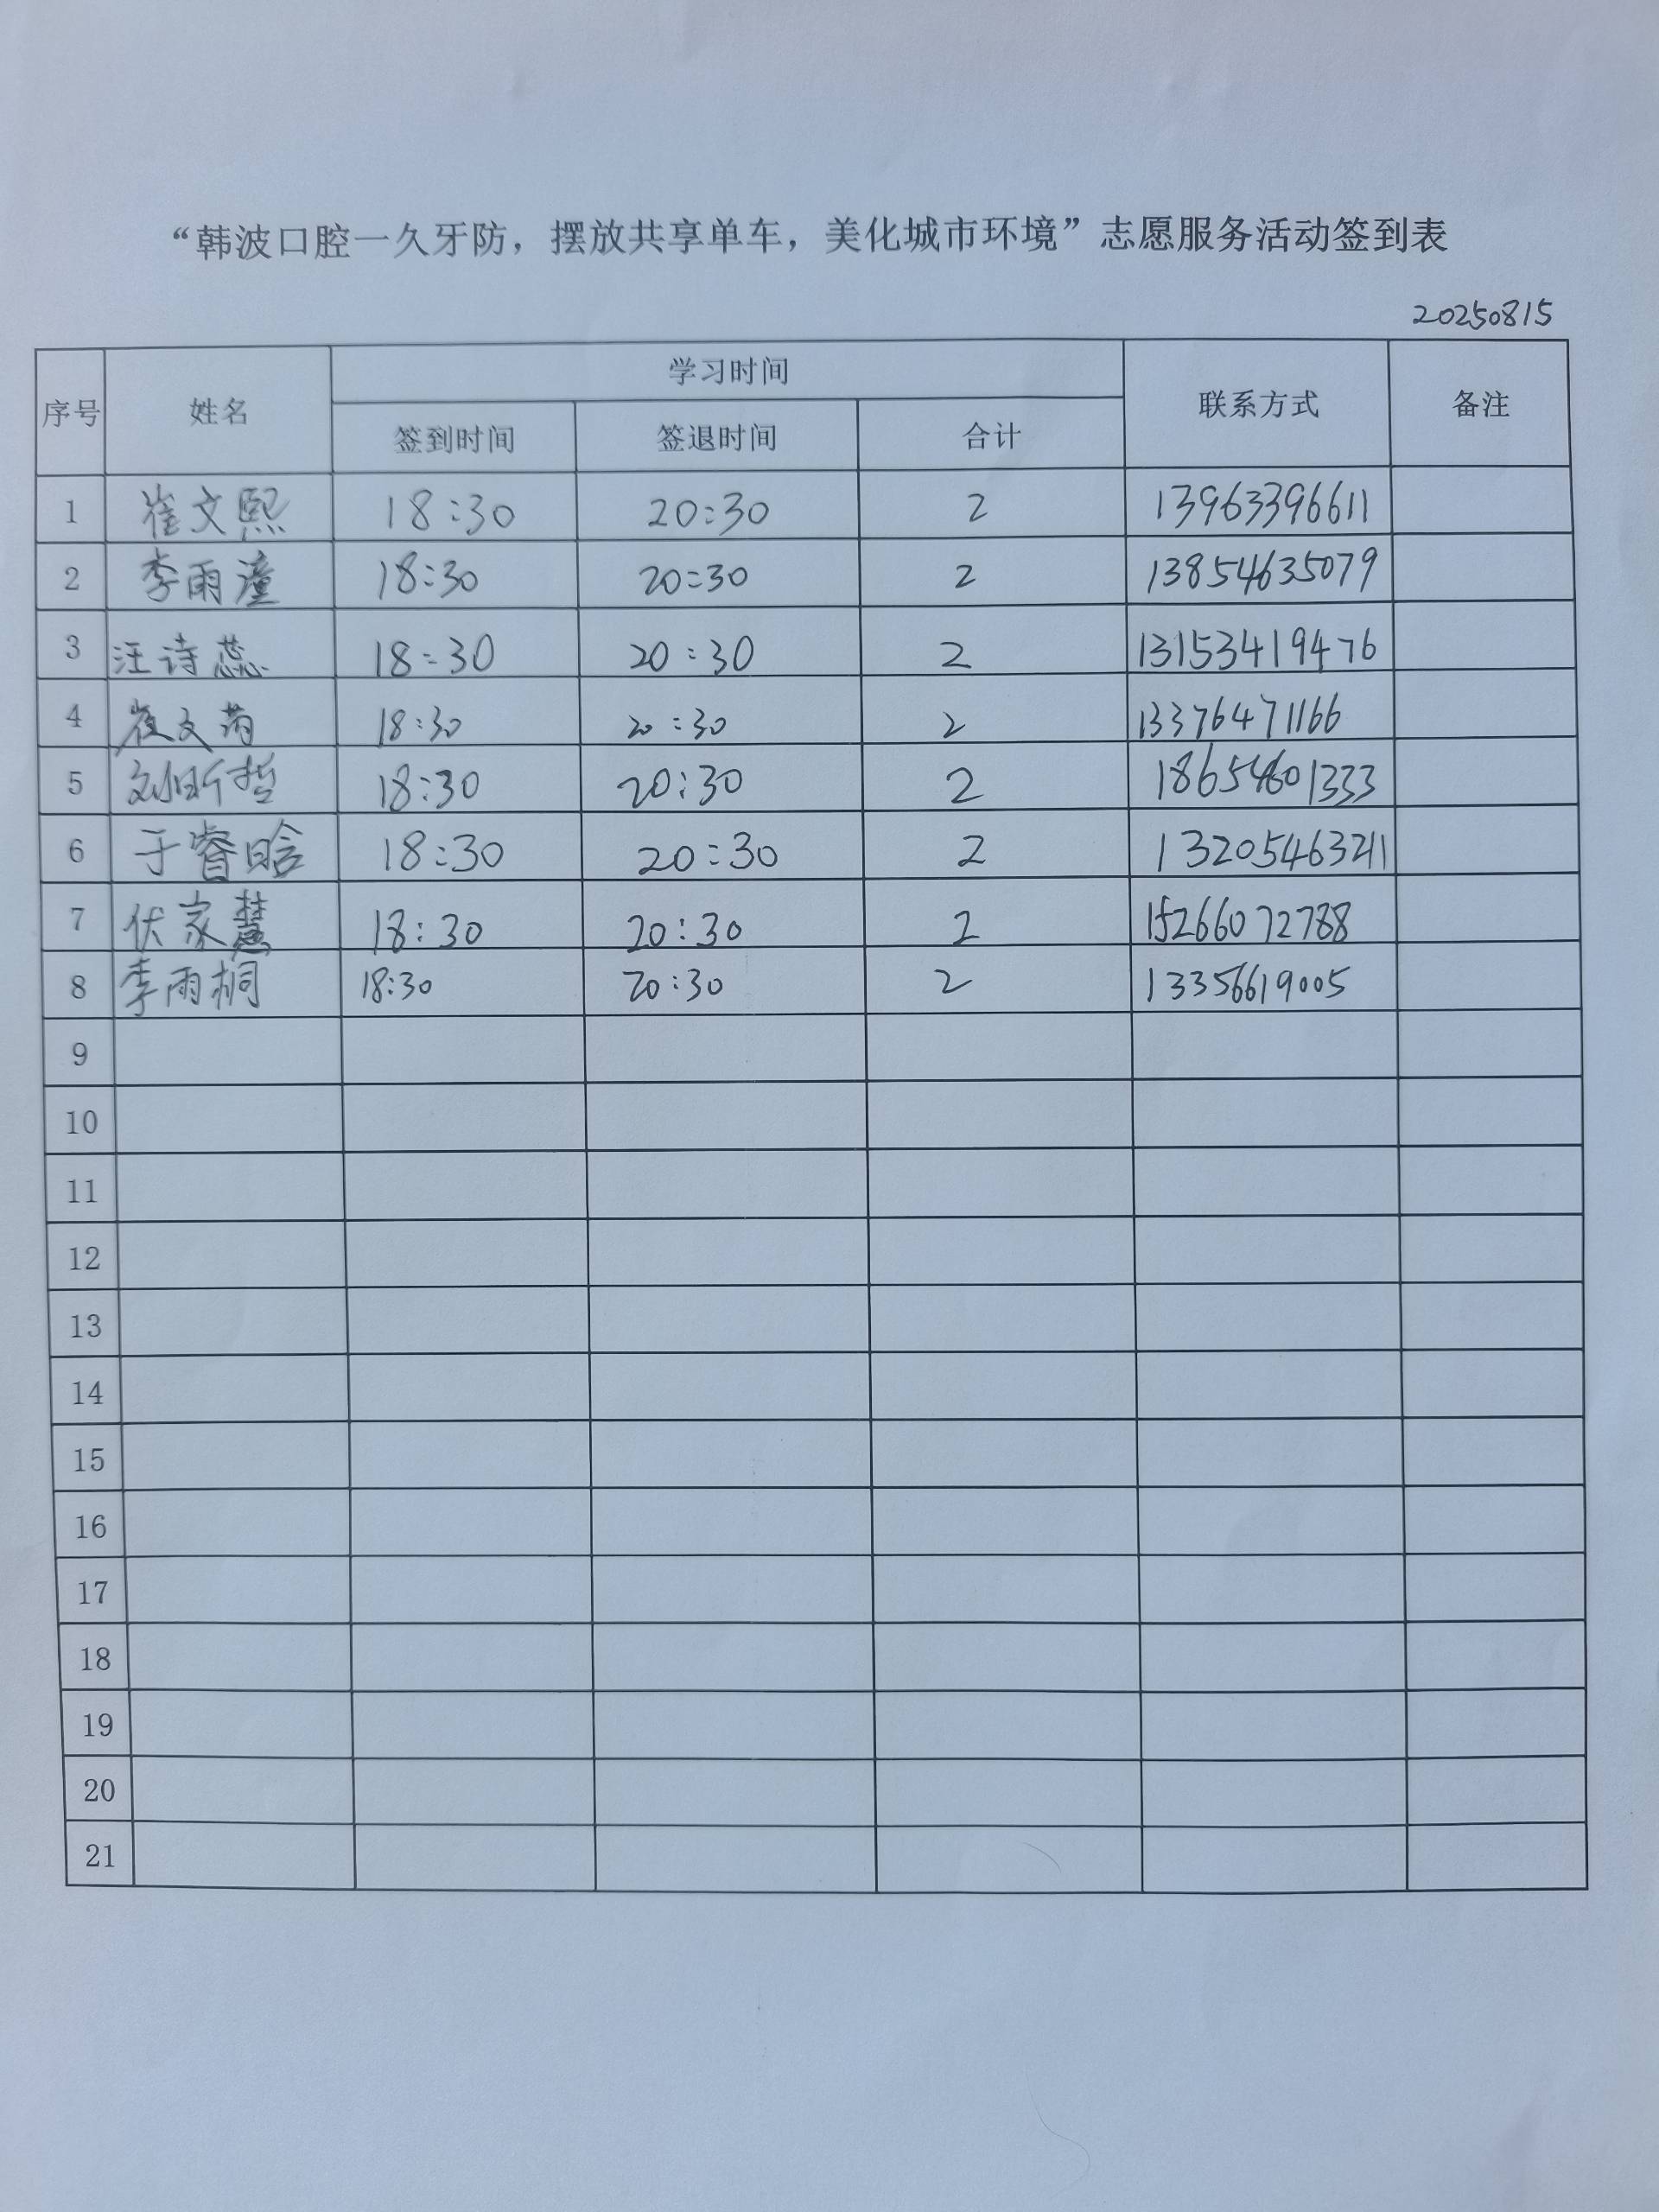 “韩波口腔一久牙防，摆放共享单车，美化城市环境”志愿服务活动签到表
20250815
序号 姓名 学习时间 联系方式 备注
签到时间 签退时间 合计
1 崔文熙 18:30 20:30 2 13963396611
2 李雨潼 18:30 20:30 2 13854635079
3 汪诗蕊 18:30 20:30 2 13153419476
4 崔文 18:30 20:30 2 13376471166
5 刘昕哲 18:30 20:30 2 18654601333
6 于睿晗 18:30 20:30 2 13205463211
7 伏家慧 18:30 20:30 2 15266072788
8 李雨桐 18:30 20:30 2 13356619005
9
10
11
12
13
14
15
16
17
18
19
20
21